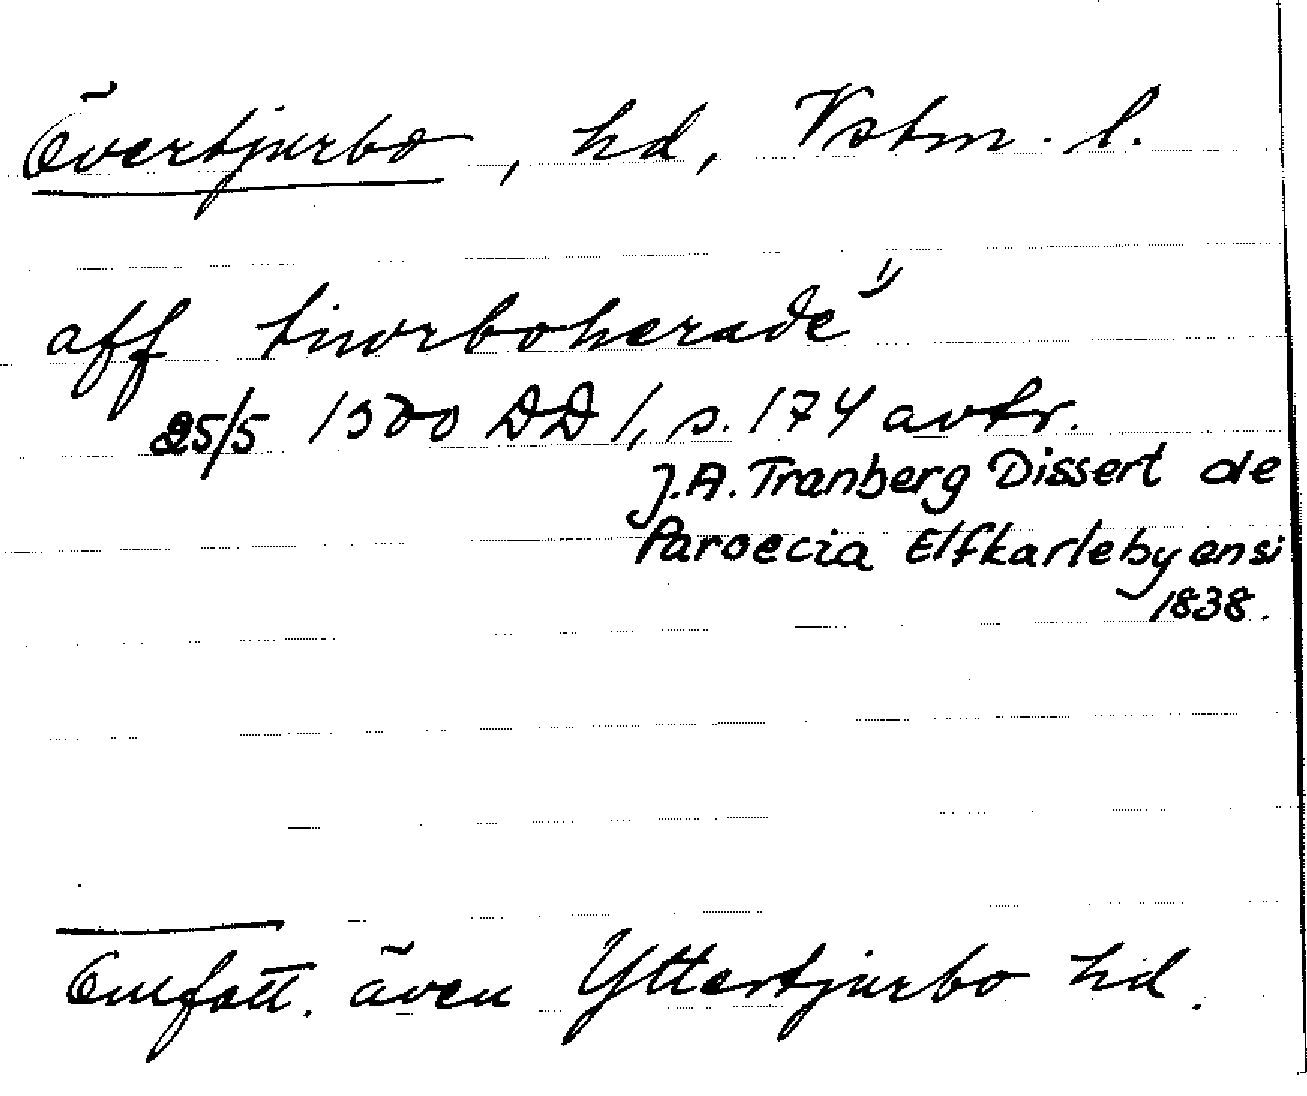 Övertjurbo, hd, Vstm. l.
aff tiurboherade 1)
25/5 1300 DD 1, s. 174 avtr.
J.A. Tranberg Dissert de
Paroecia Elfkarlebyensi
1838.
Omfatt. även Yttertjurbo hd.